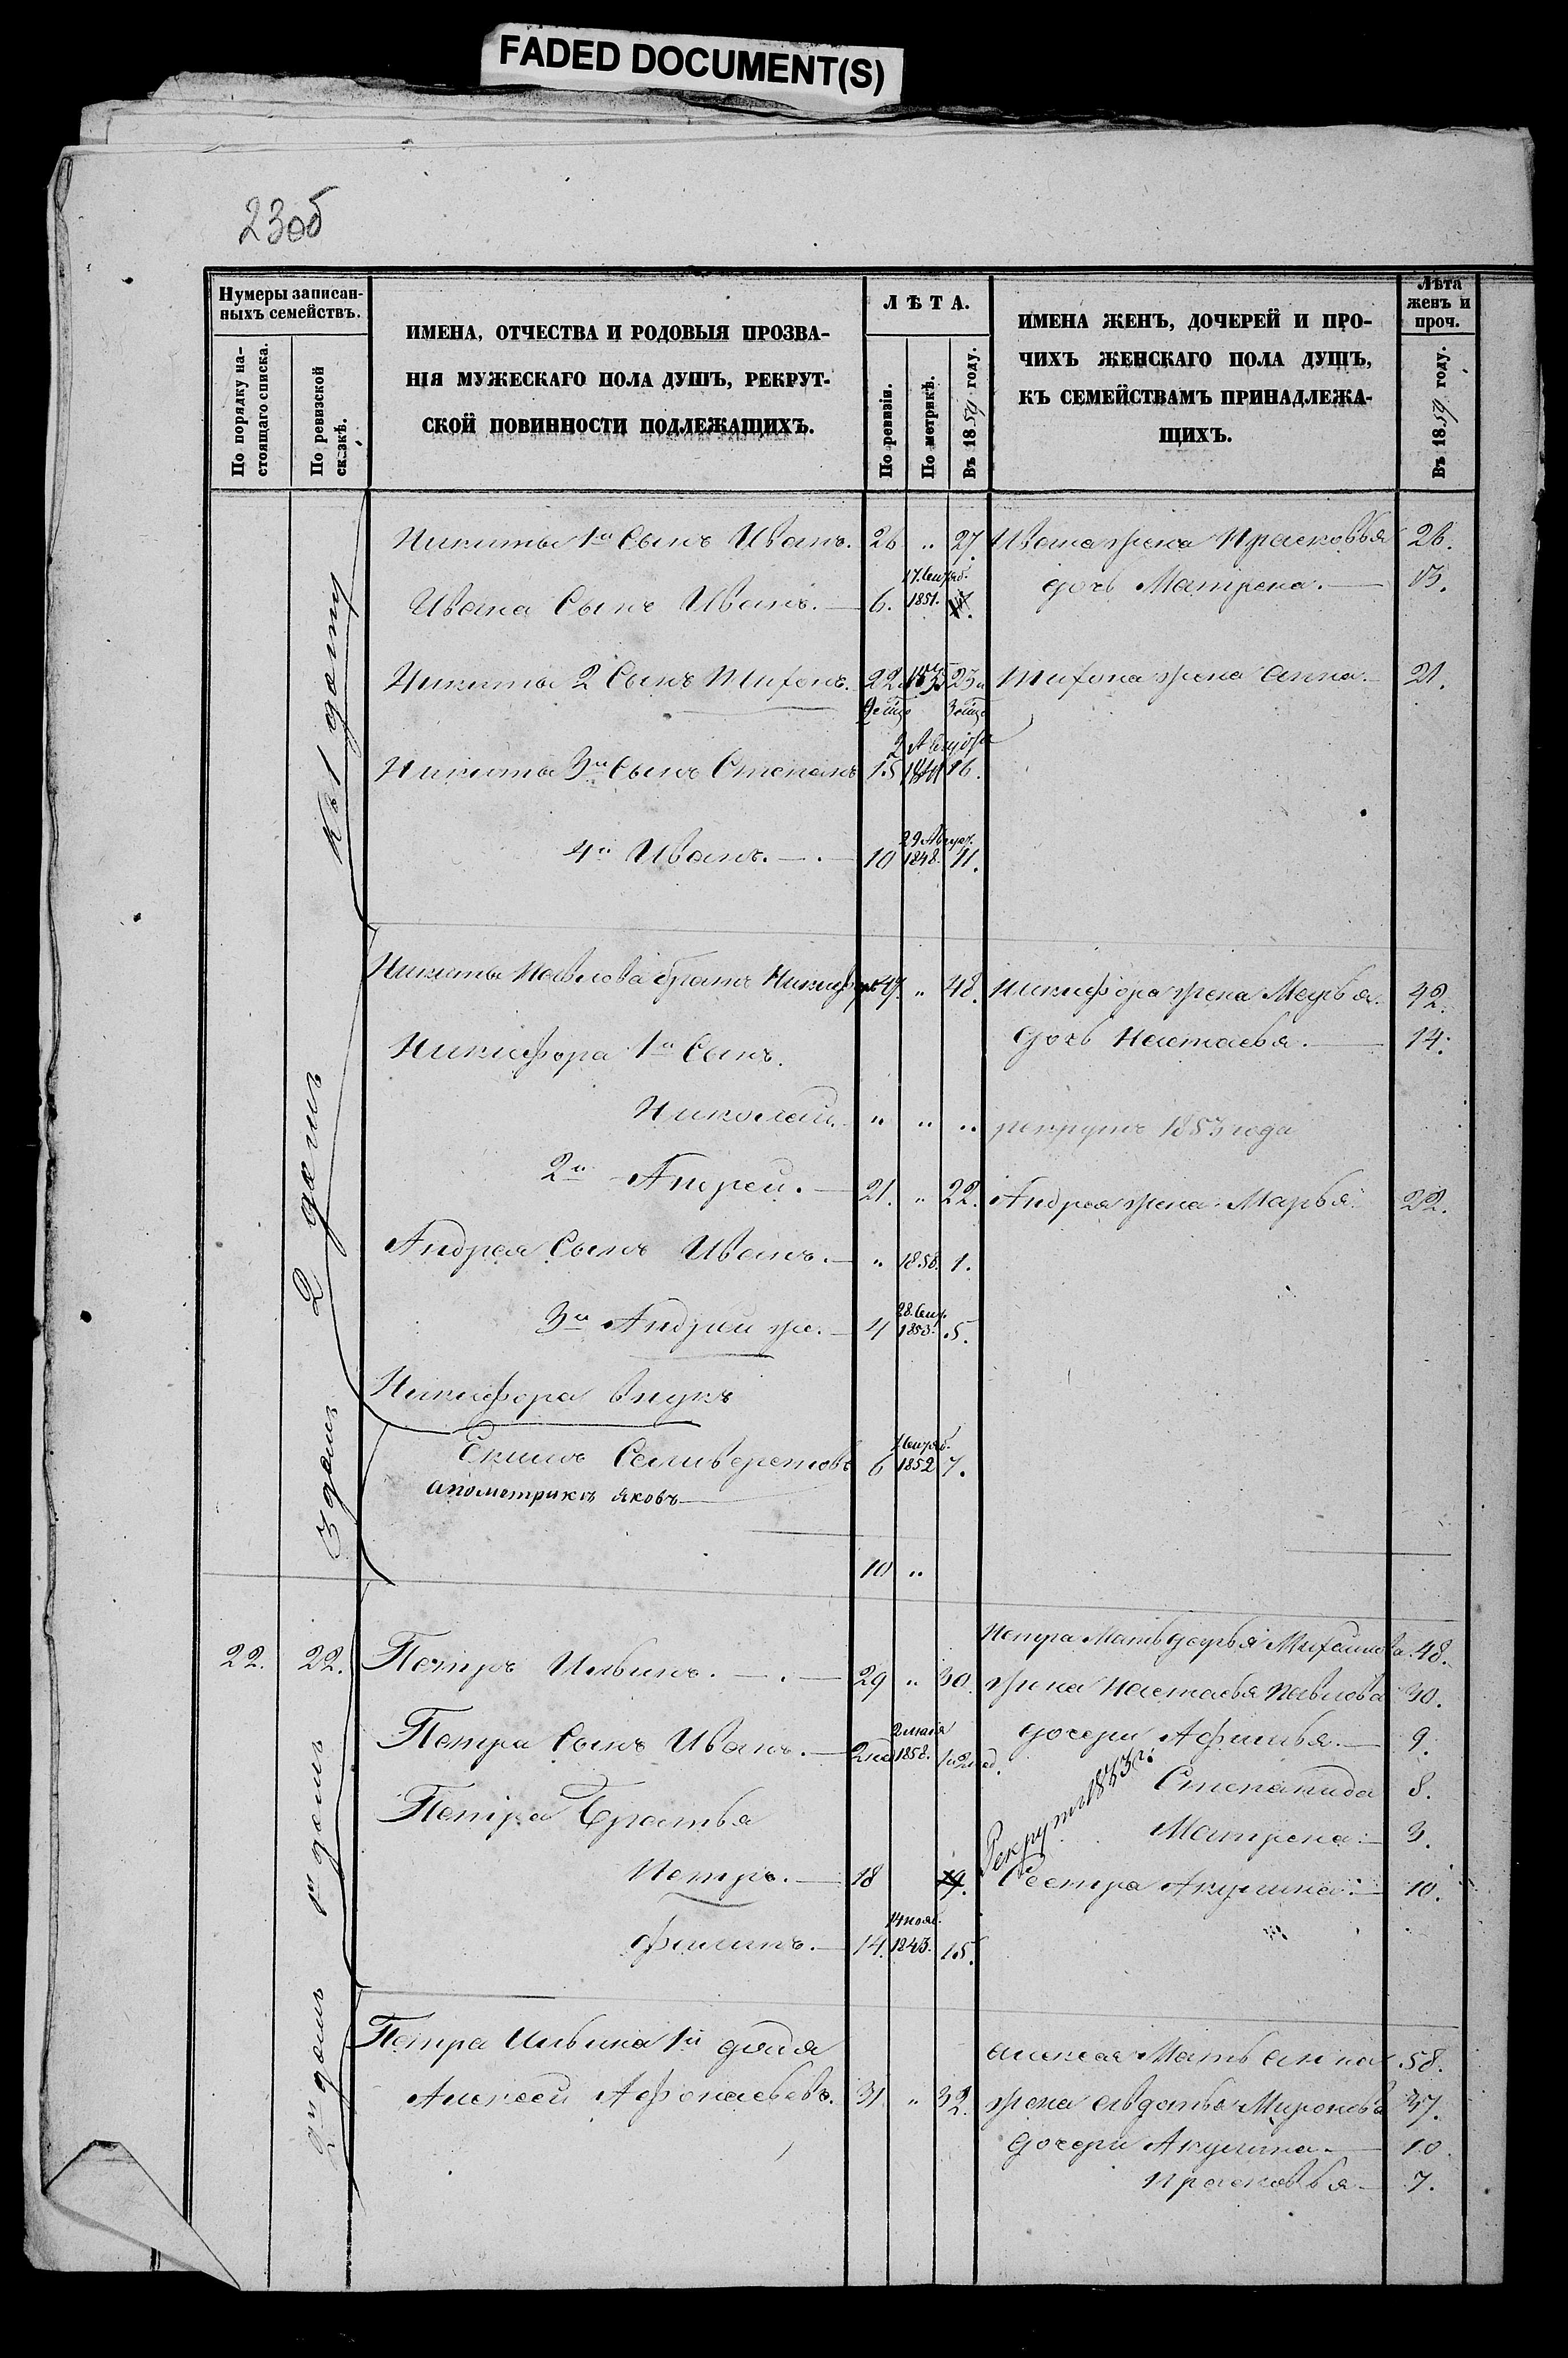 FADED DOCUMENT(S)
23об
Нумеры записан-
ныхъ семействъ.
По порядку на-
стоящаго списка.
По ревизской
сказкѣ.
ИМЕНА, ОТЧЕСТВА И РОДОВЫЯ ПРОЗВА-
НІЯ МУЖЕСКАГО ПОЛА ДУШЪ, РЕКРУТ-
СКОЙ ПОВИННОСТИ ПОДЛЕЖАЩИХЪ.
ЛѢТА.
По ревизіи.
По метрикѣ.
Въ 1859 году.
ИМЕНА ЖЕНЪ, ДОЧЕРЕЙ И ПРО-
ЧИХЪ ЖЕНСКАГО ПОЛА ДУШЪ,
КЪ СЕМЕЙСТВАМЪ ПРИНАДЛЕЖА-
ЩИХЪ.
Лѣта
женъ и
проч.
Въ 1859 году.
къ 1 дому
Никиты 1й Сынъ Иванъ. 26 " 27. Ивана жена Прасковья 26.
Ивана Сынъ Иванъ. 6. 17. Сентяб. 1851. дочь Матрена.
Никиты 2 Сынъ Тифонъ. 22. 23 Тифона жена Анна. 21.
Никиты 3й Сынъ Степанъ 15 2 Августа 16.
4й Иванъ. 10 29 Август. 1848. 11.
2 домъ
Никиты Павлова братъ Никифоръ 47. " 48. Никифора жена Марья. 42.
Никифора 1й Сынъ. дочь Настасья. 14.
Николай. " " " рекрутъ 1853 года
2й Андрей. 21. " 22. Андрея жена Марья. 22.
Андрея Сынъ Иванъ. " 1858. 1.
3й Андрей же. 4 28. Сент. 1853. 5.
3 домъ
Никифора внукъ
Екимъ Селиверстовъ 6 Сентяб. 1852 7.
а по метрикѣ Яковъ
10 "
1й домъ
Петра Мать Дарья Михайлова. 48.
22. 22. Петръ Ильинъ. 29 " 30. жена Настасья Павлова 30.
Петра Сынъ Иванъ. 2 мая 1858. дочери Афимья. 9.
Степанида 8.
Петра Братья Матрена. 3.
Рекрутъ 1853 г.
Петръ. 18 19. Сестра Акулина. 10.
Филипъ. 14. 14 нояб. 1843. 15.
2й домъ
Петра Ильина 1й дядя Алексея Мать Анна 58.
Алексей Афонасьевъ. 31. " 32. жена Авдотья Миронова 37.
дочери Акулина. 10.
Прасковья. 7.